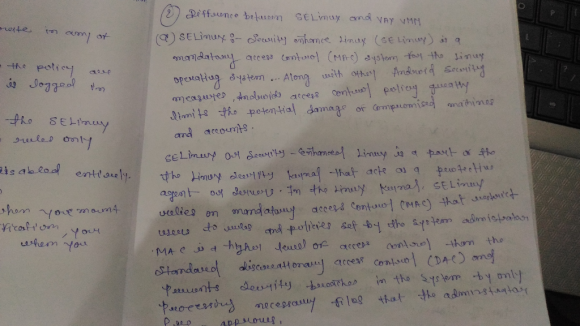 erate in any of
the policy are
is logged in
the SELinux
rules only
disabled entirely.
when you mount
your
when you
② Difference between SELinux and VAX VMM
(a) SELinux :- Security enhance Linux (SELinux) is a
mandatory access control (MAC) system for the Linux
operating system. Along with other Android security
measures, Android's access control policy greatly
limits the potential damage of compromised machines
and accounts.
SELinux or Security-Enhanced Linux is a part of the
the Linux security kernel that acts as a protective
agent on servers. In the Linux kernel, SELinux
relies on mandatory access control (MAC) that restrict
users to rules and policies set by the system administrator
MAC is a higher level of access control than the
standard discretionary access control (DAC) and
prevents security breaches in the system by only
processing necessary files that the administrator
Pre approves.